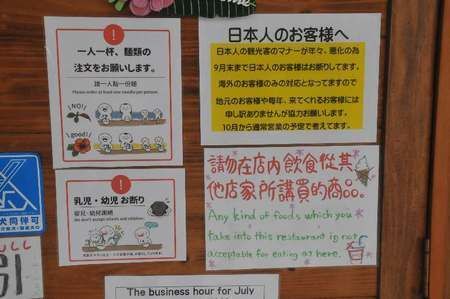 一人一杯、麺類の
注文をお願いします。
請一人點一份麵
Please order at least one noodle per person.
NO!!
good!
乳児・幼児お断り
嬰兒・幼兒謝絕
We don't accept infants and children.
日本人のお客様へ
日本人の観光客のマナーが年々、悪化の為
9月末まで日本人のお客様はお断りしてます。
海外のお客様のみの対応となってますので
地元のお客様や毎年、来てくれるお客様には
申し訳ありませんが協力お願いします。
10月から通常営業の予定で考えてます。
請勿在店內飲食從其
他店家所購買的商品。
Any kind of foods which you
take into this restaurant is not
acceptable for eating at here.
犬同伴可
The business hour for July